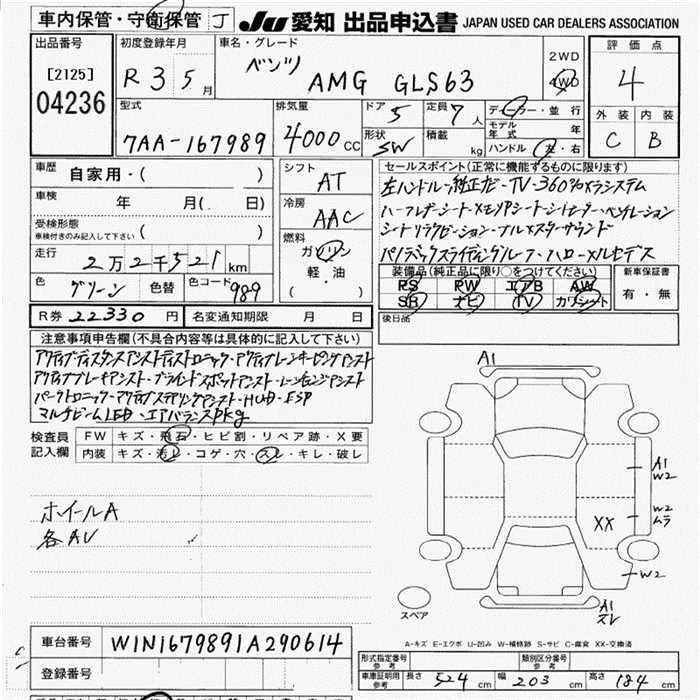 車内保管・守衛保管 J JU 愛知 出品申込書 JAPAN USED CAR DEALERS ASSOCIATION
出品番号 [2125] 04236
初度登録年月 R 3 5 月
車名・グレード ベンツ AMG GLS63
2WD
4WD
評価点 4
外装 内装
C B
型式 7AA-167989
排気量 4000 CC
ドア 5
形状 SW
定員 7 人
積載 kg
ディーラー・並行
モデル年式 年
ハンドル 左・右
車歴 自家用・( )
車検 年 月( 日)
受検形態
車検付きのみ記入して下さい ( )
走行 2万2千521 km
色 グリーン 色替 色コード 989
R券 22330 円 名変通知期限 月 日
シフト AT
冷房 AAC
燃料 ガソリン
軽・油
( )
セールスポイント(正常に機能するものに限ります)
左ハンドル・純正ナビ・TV・360°カメラシステム
ハーフレザーシート・メモリアシート・シートヒーター・ベンチレーション
シートリラクゼーション・ブルメスターサウンド
パノラミックスライディングルーフ・ハローメルセデス
装備品(純正品に限り○をつけてください)
PS PW エアB AW
SR ナビ TV カワシート
新車保証書
有・無
後日品
注意事項申告欄(不具合内容等は具体的に記入して下さい)
アクティブディスタンスアシストディストロニック・アクティブレーンキーピングアシスト
アクティブブレーキアシスト・ブラインドスポットアシスト・レーンチェンジアシスト
パークトロニック・アクティブステアリングアシスト・HUD・ESP
マルチビームLED・エアバランスpkg
検査員記入欄
FW キズ・飛石・ヒビ割・リペア跡・X要
内装 キズ・汚レ・コゲ・穴・スレ・キレ・破レ
ホイールA
各AU
A1
A1
W2
W2
ムラ
XX
W2
A1
スレ
スペア
A-キズ E-エクボ U-凹み W-補修跡 S-サビ C-腐食 XX-交換済
車台番号 W1N1679891A290614
登録番号
形式指定番号 参考
類別区分番号 参考
車庫証明用 参考 長さ 524 cm 幅 203 cm 高さ 184 cm